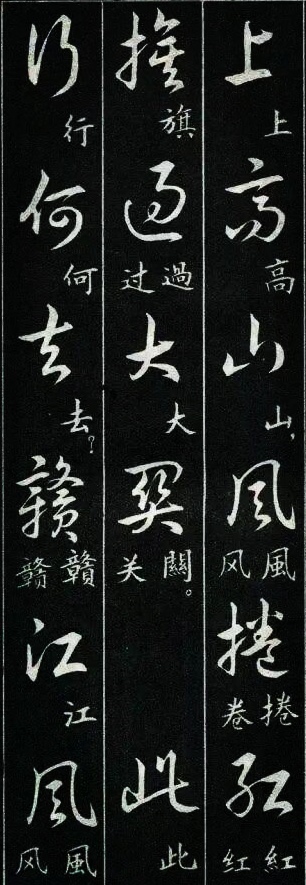 上高山風捲紅
上高山,風捲紅
风卷红
旗過大關此
旗過大關。此
过关
行何去贛江風
行何去?贛江風
赣风